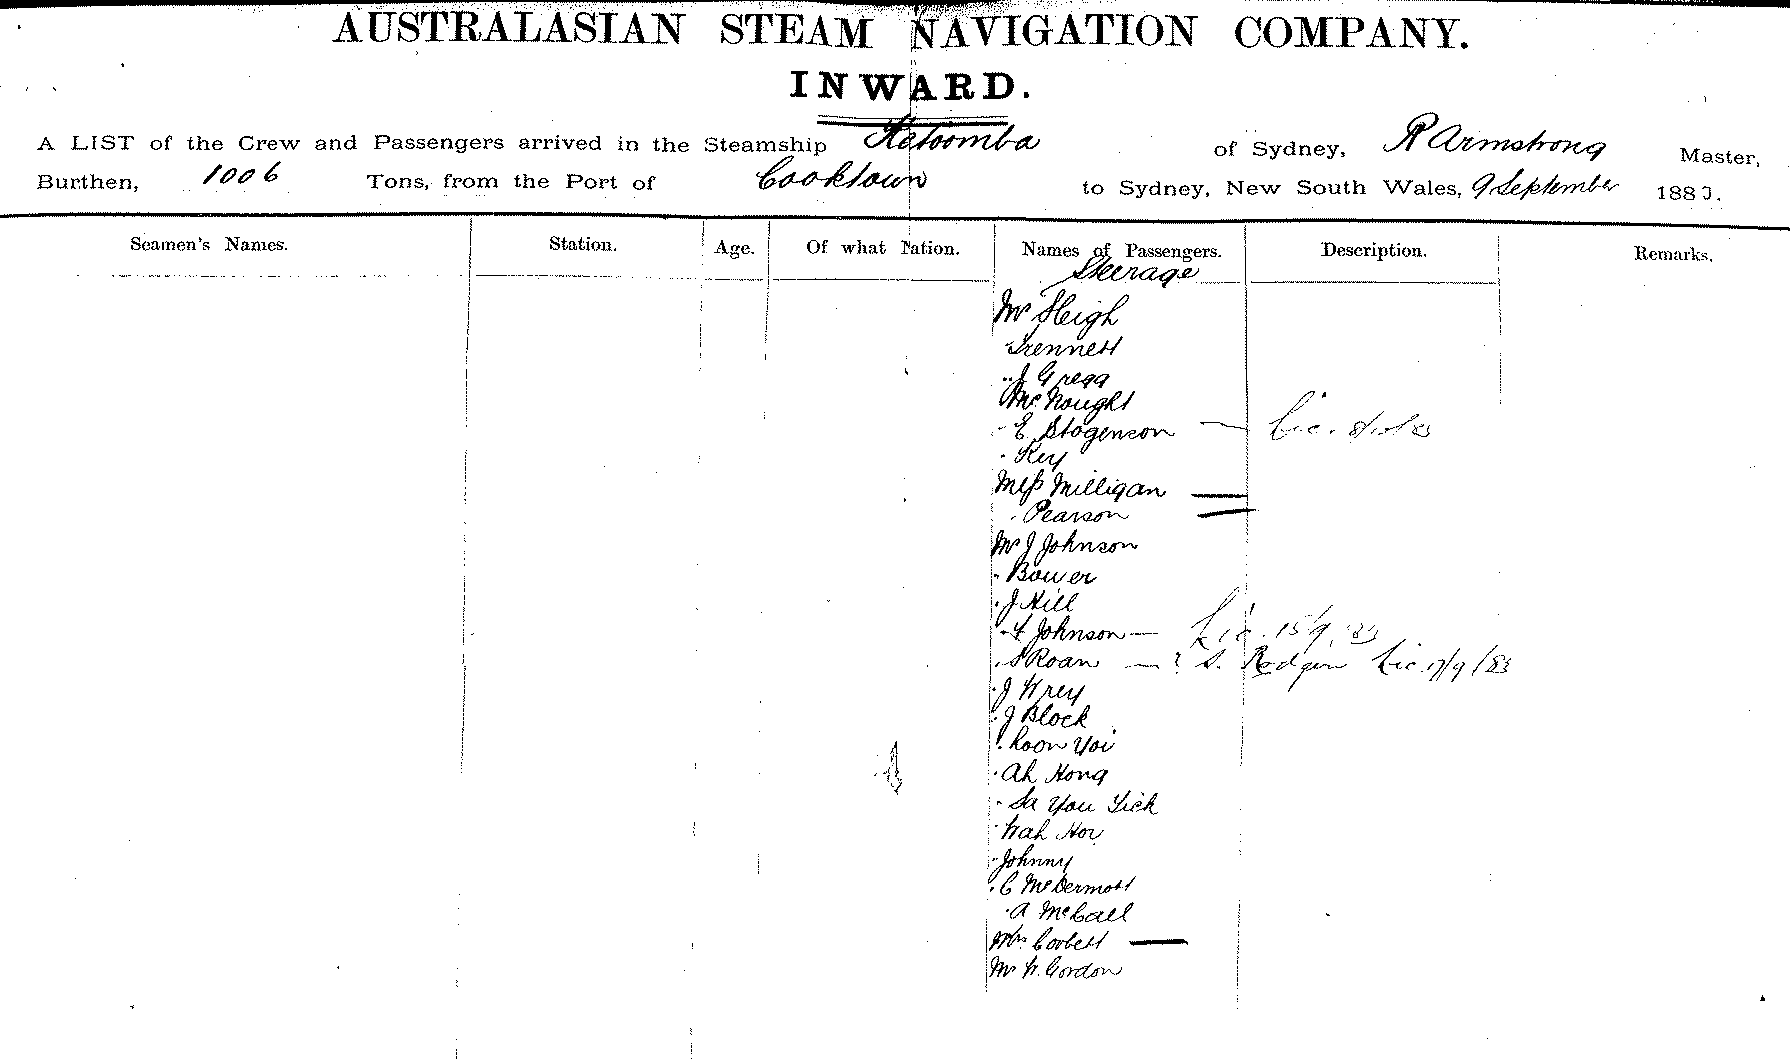 AUSTRALASIAN STEAM NAVIGATION COMPANY.
INWARD.
A LIST of the Crew and Passengers arrived in the Steamship Katoomba of Sydney, R Armstrong Master,
Burthen, 1006 Tons, from the Port of Cooktown to Sydney, New South Wales, 9 September 1883.
Seamen's Names. Station. Age. Of what Nation. Names of Passengers. Description. Remarks.
Steerage
Mr Sleigh
Trennett
" J Gregg
McNought
" E Stogenson — Lic.
" Key
Miss Milligan —
" Pearson —
Mr J Johnson
" Bower
" J Hill
" F Johnson — Lic. 15/9/83
" S Roan — ? S. Rodgen Lic 17/9/83
" J Wrey
" J Block
" Koon Yoi
" Ah Hong
" Sa You Tick
" Wah Hov
" Johnny
" C McDermott
" A McCall
Mrs Corbett —
Mr W. Gordon